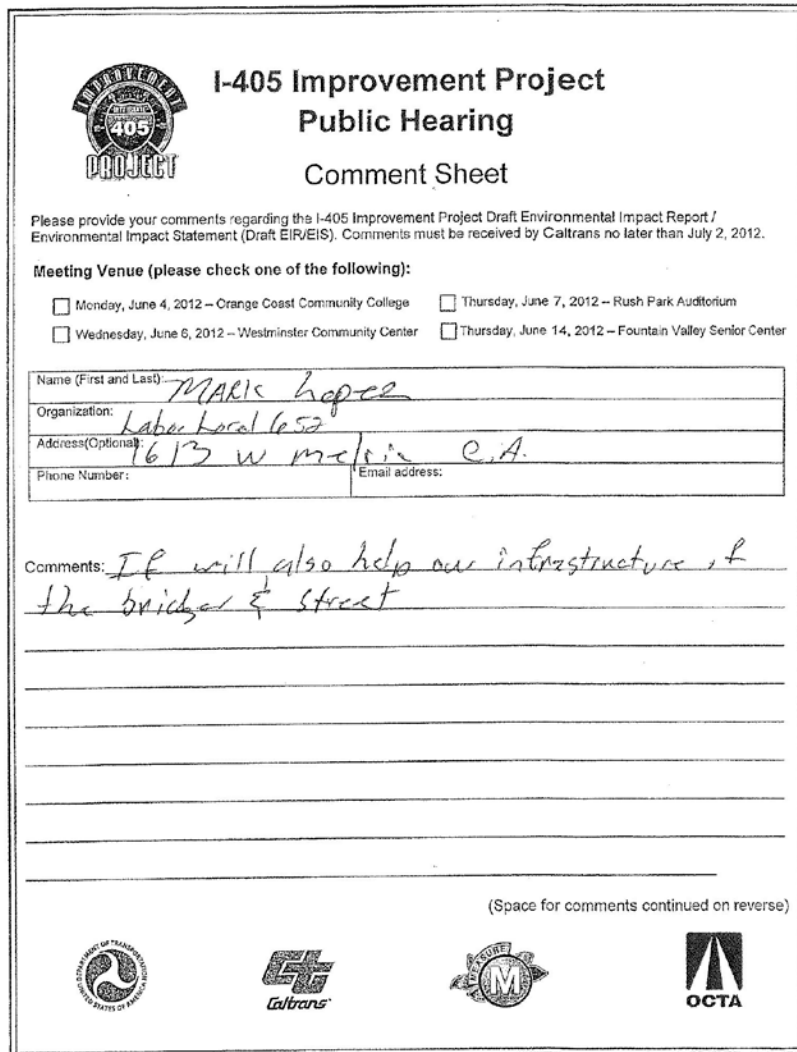 IMPROVEMENT
405
PROJECT
I-405 Improvement Project
Public Hearing
Comment Sheet
Please provide your comments regarding the I-405 Improvement Project Draft Environmental Impact Report /
Environmental Impact Statement (Draft EIR/EIS). Comments must be received by Caltrans no later than July 2, 2012.
Meeting Venue (please check one of the following):
Monday, June 4, 2012 – Orange Coast Community College
Thursday, June 7, 2012 – Rush Park Auditorium
Wednesday, June 6, 2012 – Westminster Community Center
Thursday, June 14, 2012 – Fountain Valley Senior Center
Name (First and Last): MARK Lopez
Organization: Labor Local 652
Address(Optional): 1613 W C.A.
Phone Number:
Email address:
Comments: If will also help our infrastructure of
the bridges & street
(Space for comments continued on reverse)
DEPARTMENT OF TRANSPORTATION
UNITED STATES OF AMERICA
Caltrans
MEASURE
M
OCTA